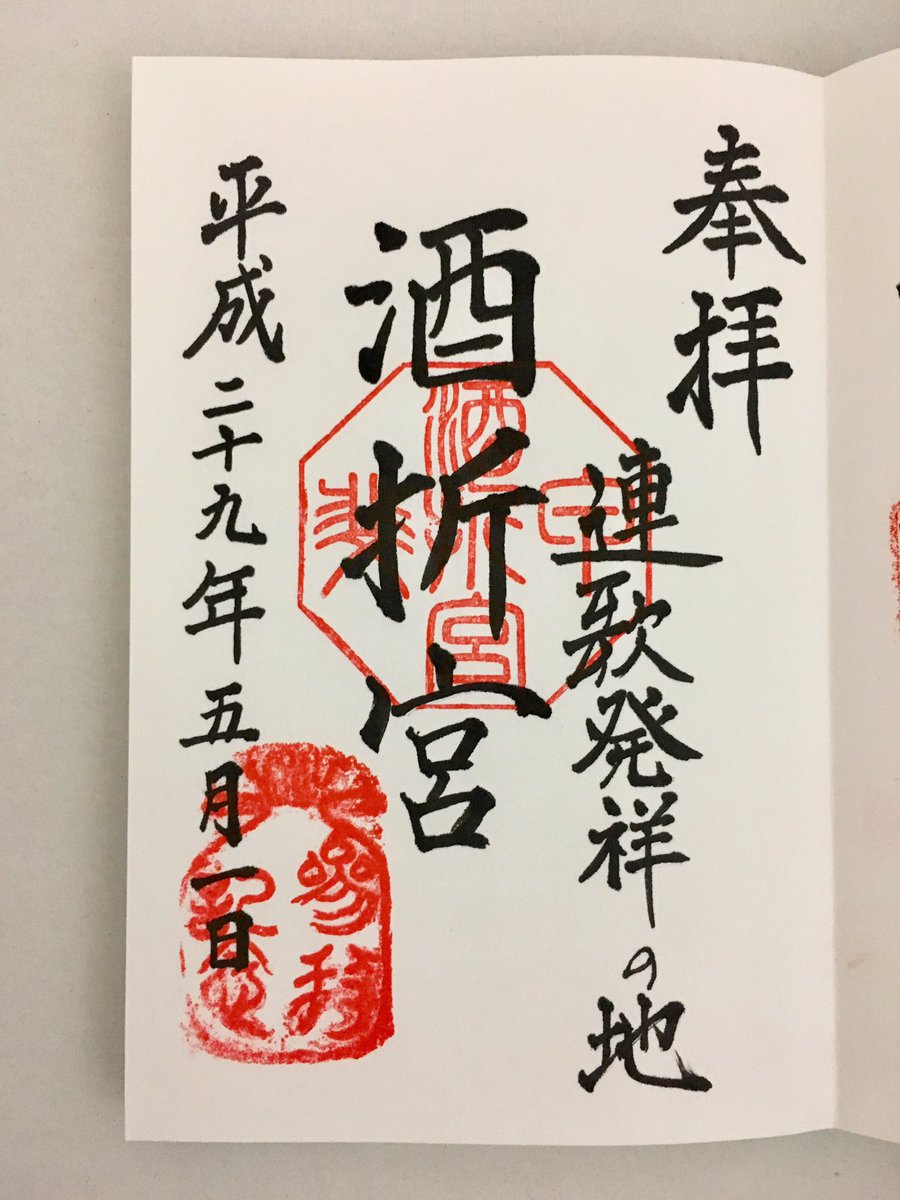 奉拝
連歌発祥の地
酒折宮
平成二十九年五月一日
酒折宮
参拝